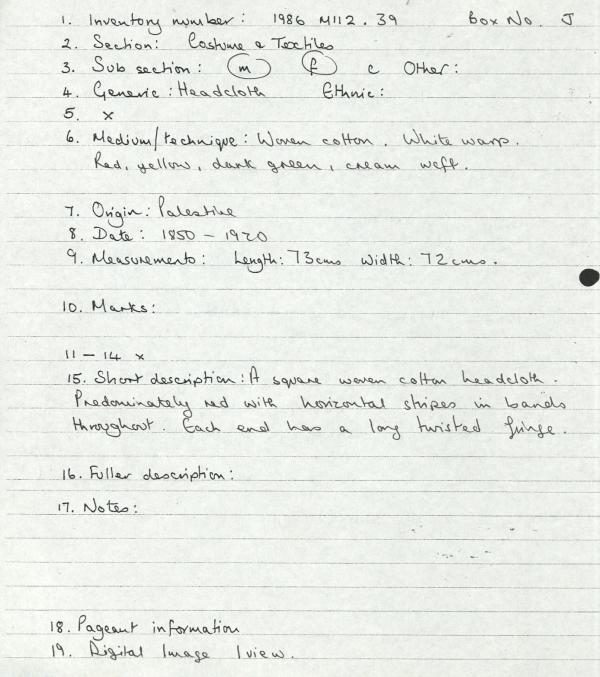 1. Inventory number: 1986 M112.39 Box No. J
2. Section: Costume & Textiles
3. Sub section: m f c Other:
4. Generic: Headcloth Ethnic:
5. x
6. Medium/technique: Woven cotton. White warp.
Red, yellow, dark green, cream weft.
7. Origin: Palestine
8. Date: 1850 - 1920
9. Measurements: Length: 73cms Width: 72cms.
10. Marks:
11 - 14 x
15. Short description: A square woven cotton headcloth.
Predominately red with horizontal stripes in bands
throughout. Each end has a long twisted fringe.
16. Fuller description:
17. Notes:
18. Pageant information
19. Digital Image 1view.